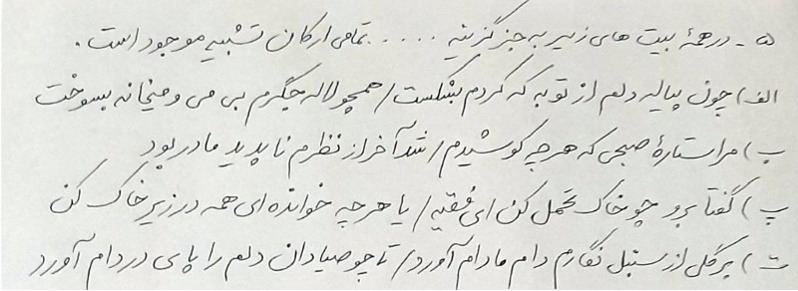 ۵- در همهٔ بیت های زیر به جز گزینه ..... تمامی ارکان تشبیه موجود است.
الف) چون پیاله دلم از توبه که کردم بشکست / همچو لاله جگرم بی می و میخانه بسوخت
ب) مرا ستارهٔ صبحی که هرچه کوشیدم / شد آخر از نظرم ناپدید مادر بود
پ) گفتا برو چو خاک تحمل کن ای فقیه / یا هرچه خوانده ای همه در زیر خاک کن
ت) بر گل از سنبل نگارم دام مادام آورد / تا چو صیادان دلم را پای در دام آورد